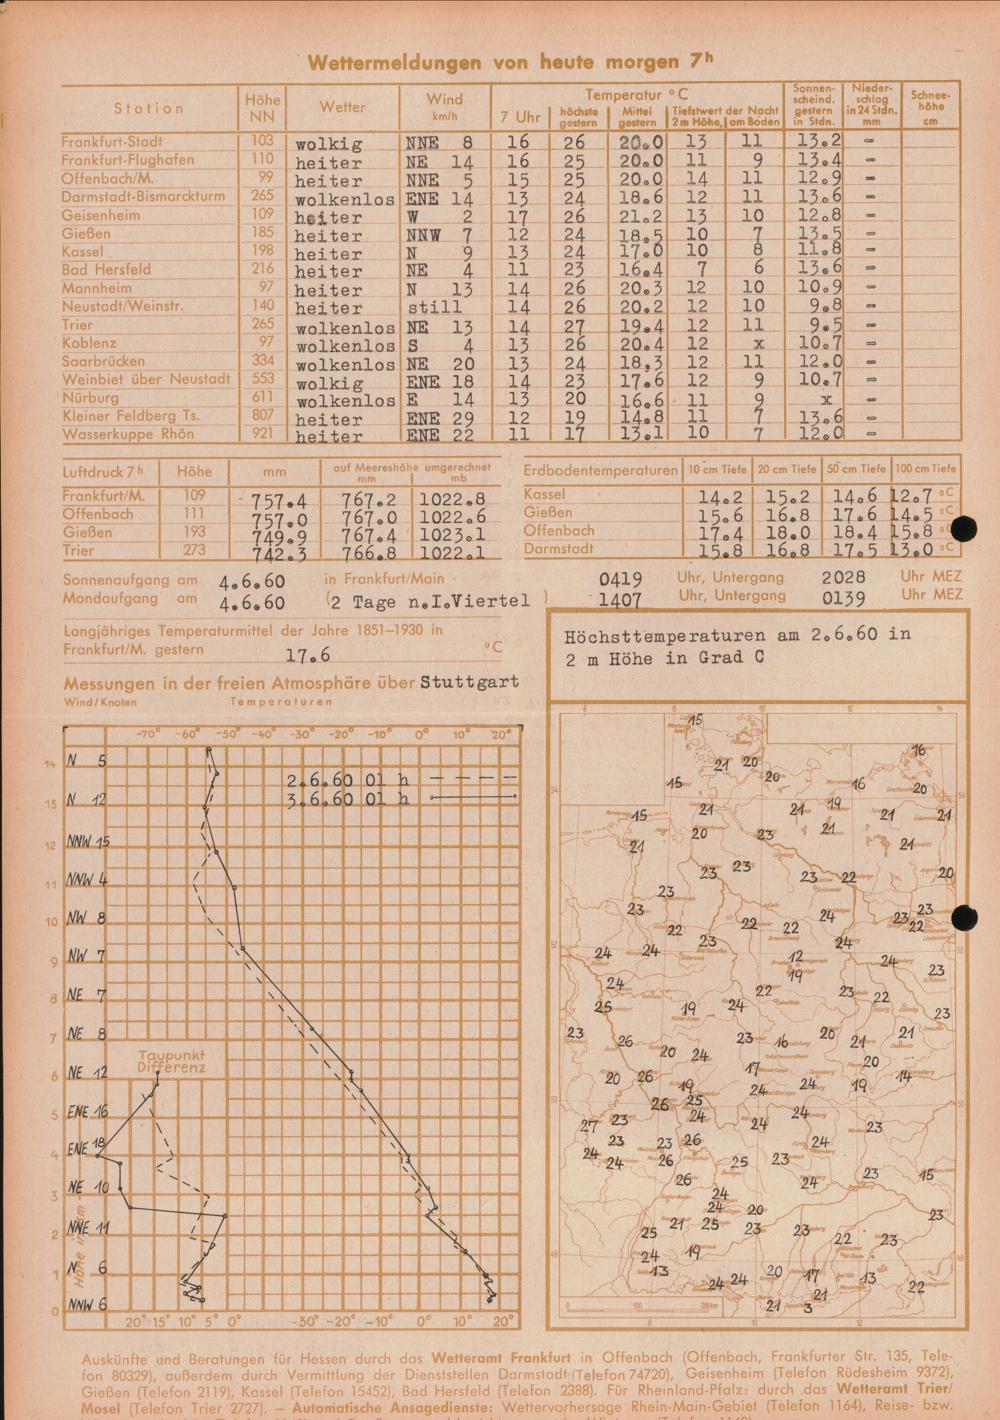 Wettermeldungen von heute morgen 7h
Station Höhe NN Wetter Wind km/h Temperatur °C Sonnen- scheind. gestern in Stdn. Nieder- schlag in 24 Stdn. mm Schnee- höhe cm
7 Uhr höchste gestern Mittel gestern Tiefstwert der Nacht 2m Höhe, am Boden
Frankfurt-Stadt 103 wolkig NNE 8 16 26 20.0 13 11 13.2 -
Frankfurt-Flughafen 110 heiter NE 14 16 25 20.0 11 9 13.4 -
Offenbach/M. 99 heiter NNE 5 15 25 20.0 14 11 12.9 -
Darmstadt-Bismarckturm 265 wolkenlos ENE 14 13 24 18.6 12 11 13.6 -
Geisenheim 109 heiter W 2 17 26 21.2 13 10 12.8 -
Gießen 185 heiter NNW 7 12 24 18.5 10 7 13.5 -
Kassel 198 heiter N 9 13 24 17.0 10 8 11.8 -
Bad Hersfeld 216 heiter NE 4 11 23 16.4 7 6 13.6 -
Mannheim 97 heiter N 13 14 26 20.3 12 10 10.9 -
Neustadt/Weinstr. 140 heiter still 14 26 20.2 12 10 9.8 -
Trier 265 wolkenlos NE 13 14 27 19.4 12 11 9.5 -
Koblenz 97 wolkenlos S 4 13 26 20.4 12 x 10.7 -
Saarbrücken 334 wolkenlos NE 20 13 24 18,3 12 11 12.0 -
Weinbiet über Neustadt 553 wolkig ENE 18 14 23 17.6 12 9 10.7 -
Nürburg 611 wolkenlos E 14 13 20 16.6 11 9 x -
Kleiner Feldberg Ts. 807 heiter ENE 29 12 19 14.8 11 7 13.6 -
Wasserkuppe Rhön 921 heiter ENE 22 11 17 13.1 10 7 12.0 -
Luftdruck 7h Höhe mm auf Meereshöhe umgerechnet mm mb
Frankfurt/M. 109 757.4 767.2 1022.8
Offenbach 111 757.0 767.0 1022.6
Gießen 193 749.9 767.4 1023.1
Trier 273 742.3 766.8 1022.1
Erdbodentemperaturen 10 cm Tiefe 20 cm Tiefe 50 cm Tiefe 100 cm Tiefe
Kassel 14.2 15.2 14.6 12.7 °C
Gießen 15.6 16.8 17.6 14.5 °C
Offenbach 17.4 18.0 18.4 15.8 °C
Darmstadt 15.8 16.8 17.5 13.0 °C
Sonnenaufgang am 4.6.60 in Frankfurt/Main 0419 Uhr, Untergang 2028 Uhr MEZ
Mondaufgang am 4.6.60 (2 Tage n.I.Viertel ) 1407 Uhr, Untergang 0139 Uhr MEZ
Langjähriges Temperaturmittel der Jahre 1851–1930 in
Frankfurt/M. gestern 17.6 °C
Messungen in der freien Atmosphäre über Stuttgart
Wind/Knoten Temperaturen
-70° -60° -50° -40° -30° -20° -10° 0° 10° 20°
14 N 5
2.6.60 01 h
3.6.60 01 h
13 N 12
12 NNW 15
11 NNW 4
10 NW 8
9 NW 7
8 NE 7
7 NE 8
Taupunkt
Differenz
6 NE 12
5 ENE 16
4 ENE 18
3 NE 10
2 NNE 11
1 N 6
0 NNW 6
Höhe in km
20° 15° 10° 5° 0° -30° -20° -10° 0° 10° 20°
Höchsttemperaturen am 2.6.60 in
2 m Höhe in Grad C
6 8 10 12 14
15
21 20 16
15 20 16 20
15 21 21 19 21 21
21 20 23 21 21
23 23 23 22 20
23 23 22 22 22 24 23 23 22
24 24 23 12 24 24
24 19 22 23 22 23
25 19 24 23
23 26 20 24 23 16 20 21 21
20 26 19 17 24 24 19 20 14
27 23 26 25 24 24 24 23
24 23 24 23 26 26 25 23 24
26 24 24 20 24 23 15
25 21 25 23 23 22 23 23
24 13 19 24 24 20 17 13 22
21 21 3
0 100 200km
Auskünfte und Beratungen für Hessen durch das Wetteramt Frankfurt in Offenbach (Offenbach, Frankfurter Str. 135, Tele-
fon 80329), außerdem durch Vermittlung der Dienststellen Darmstadt (Telefon 74720), Geisenheim (Telefon Rüdesheim 9372),
Gießen (Telefon 2119), Kassel (Telefon 15452), Bad Hersfeld (Telefon 2388). Für Rheinland-Pfalz: durch das Wetteramt Trier/
Mosel (Telefon Trier 2727). – Automatische Ansagedienste: Wettervorhersage Rhein-Main-Gebiet (Telefon 1164), Reise- bzw.